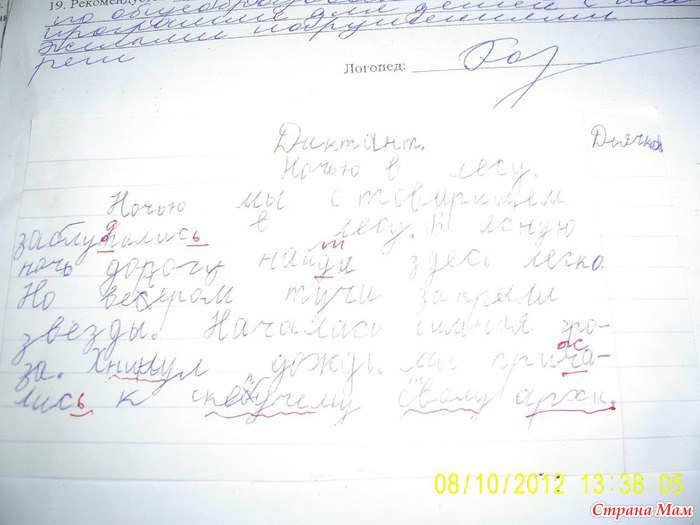 19. Рекомендуе
по общеобразова
программе для детей с
речи
Логопед:
Диктант. Дьячков
Ночью в лесу.
Ночью мы с товарищем
заблутились в лесу. В ясную
ночь дорогу найди здесь легко.
Но вечером тучи закрыли
звезды. Началась сильная гро-
за. Хнинул дождь. мы прича-
лись к скебучему сваму архи.
08/10/2012 13:38:05
Страна Мам